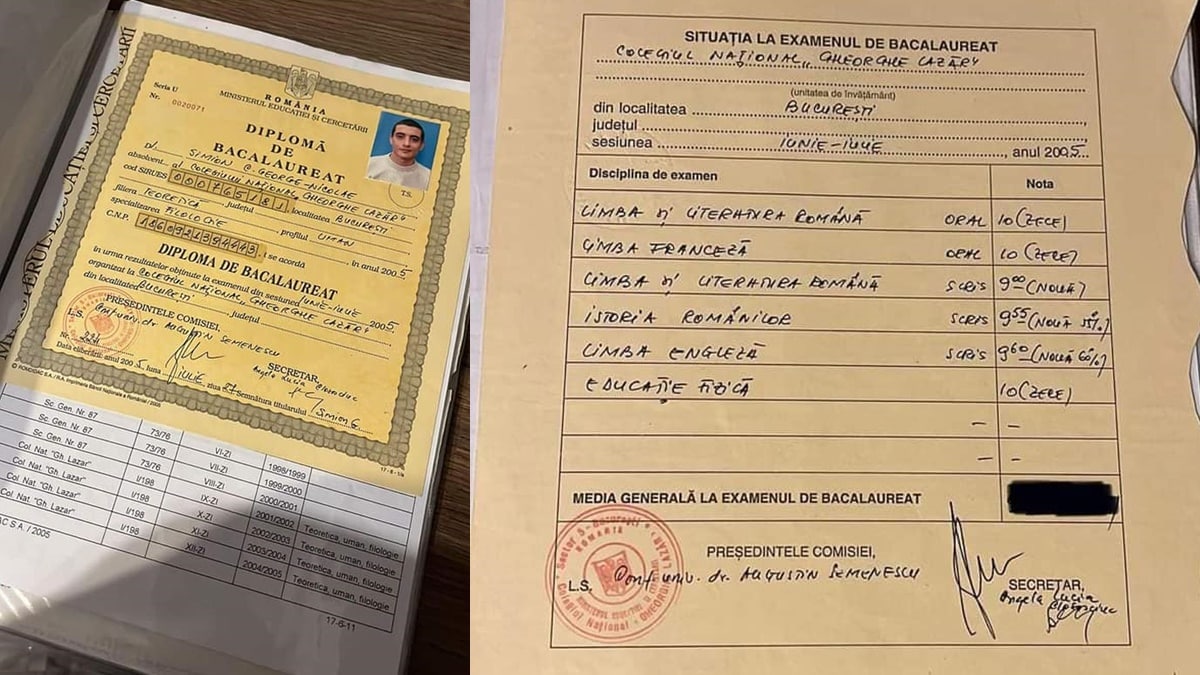 MINISTERUL EDUCAȚIEI ȘI CERCETĂRII
Seria U
Nr. 0020071
ROMÂNIA
MINISTERUL EDUCAȚIEI ȘI CERCETĂRII
DIPLOMĂ
DE
BACALAUREAT
D/ SIMION G. GEORGE-NICOLAE
absolvent al COLEGIULUI NAȚIONAL „GHEORGHE LAZĂR”
cod SIRUES 000765181, localitatea BUCUREȘTI
județul
filiera TEORETICĂ, profilul UMAN
specializarea FILOLOGIE, în anul 2005
C.N.P. 1860921394443, i se acordă
DIPLOMA DE BACALAUREAT
în urma rezultatelor obținute la examenul din sesiunea IUNIE-IULIE 2005
organizat la COLEGIUL NAȚIONAL „GHEORGHE LAZĂR”
din localitatea BUCUREȘTI județul
T.S.
PREȘEDINTELE COMISIEI,
L.S. Conf. univ. dr. AUGUSTIN SEMENESCU
SECRETAR,
Angela Lucia
Nr.
Data eliberării: anul 2005, luna IULIE, ziua 27 Semnătura titularului Simion G.
© ROMDIDAC S.A. / R.A. Imprimeria Băncii Naționale a României / 2005
17-6-1/a
Sc. Gen. Nr. 87 73/76 VI-ZI 1998/1999
Sc. Gen. Nr. 87 73/76 VII-ZI 1999/2000
Sc. Gen. Nr. 87 73/76 VIII-ZI 2000/2001
Col Nat. "Gh. Lazar" I/198 IX-ZI 2001/2002 Teoretica, uman, filologie
Col Nat. "Gh. Lazar" I/198 X-ZI 2002/2003 Teoretica, uman, filologie
Col Nat. "Gh. Lazar" I/198 XI-ZI 2003/2004 Teoretica, uman, filologie
Col Nat. "Gh. Lazar" I/198 XII-ZI 2004/2005 Teoretica, uman, filologie
DAC S.A. / 2005
17-6-11
SITUAȚIA LA EXAMENUL DE BACALAUREAT
COLEGIUL NAȚIONAL „GHEORGHE LAZĂR”
(unitatea de învățământ)
din localitatea BUCUREȘTI
județul
sesiunea IUNIE-IULIE, anul 2005
Disciplina de examen Nota
LIMBA ȘI LITERATURA ROMÂNĂ ORAL 10 (ZECE)
LIMBA FRANCEZĂ ORAL 10 (ZECE)
LIMBA ȘI LITERATURA ROMÂNĂ SCRIS 9 00 (NOUĂ)
ISTORIA ROMÂNILOR SCRIS 9 55 (NOUĂ 55%)
LIMBA ENGLEZĂ SCRIS 9 60 (NOUĂ 60%)
EDUCAȚIE FIZICĂ 10 (ZECE)
– –
– –
MEDIA GENERALĂ LA EXAMENUL DE BACALAUREAT
PREȘEDINTELE COMISIEI,
L.S. Conf. univ. dr. AUGUSTIN SEMENESCU
SECRETAR,
Angela Lucia
Sector 5 - București
ROMANIA
Colegiul Național GHEORGHE LAZAR